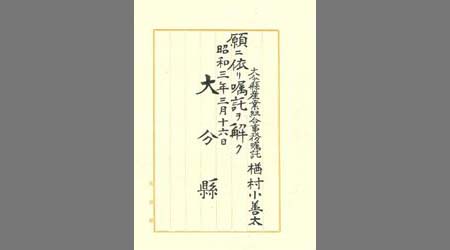 大分縣産業組合事務嘱託　楢村小善太
願ニ依リ嘱託ヲ解ク
昭和三年三月十六日
大分縣